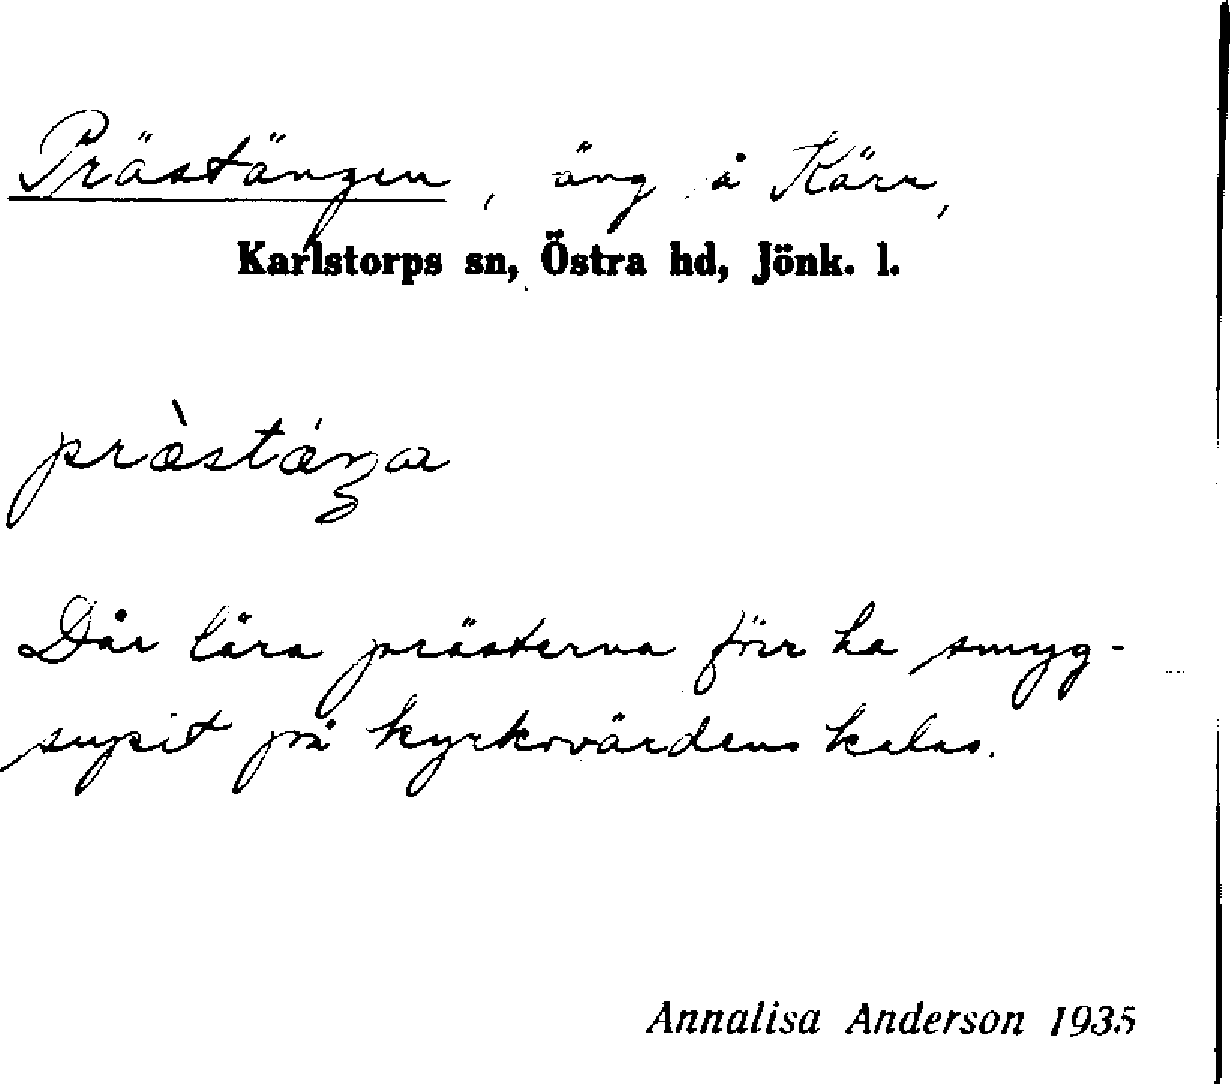 Prästängen, äng å Kärr,
Karlstorps sn, Östra hd, Jönk. l.
præ̀stǽŋa
Där lära prästerna förr ha smyg-
supit på kyrkovärdens kalas.
Annalisa Anderson 1935